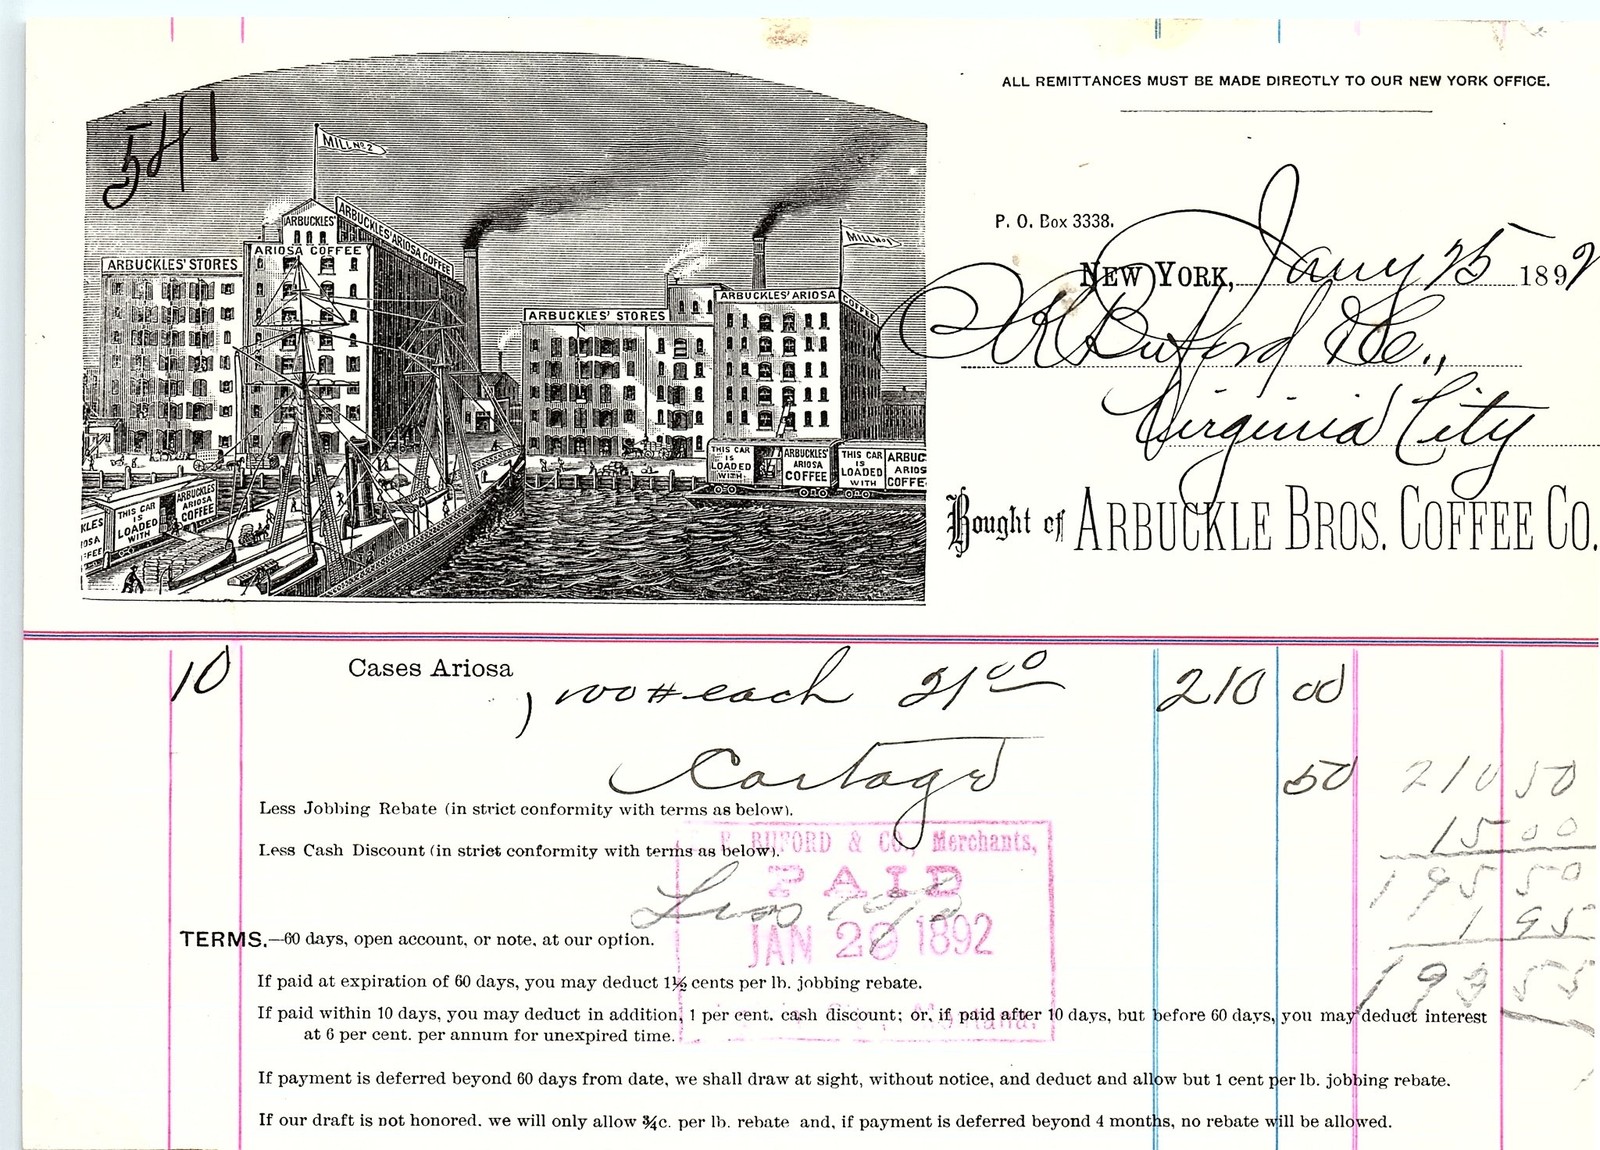 541
MILL No 2
ARBUCKLES'
ARBUCKLES' ARIOSA COFFEE
ARIOSA COFFEE
ARBUCKLES' STORES
MILL No 1
ARBUCKLES' ARIOSA COFFEE
ARBUCKLES' STORES
THIS CAR IS LOADED WITH
ARBUCKLES' ARIOSA COFFEE
THIS CAR IS LOADED WITH
THIS CAR IS LOADED WITH
ARBUCKLES ARIOSA COFFEE
ALL REMITTANCES MUST BE MADE DIRECTLY TO OUR NEW YORK OFFICE.
P. O. Box 3338.
NEW YORK, Jany 25 1892
Buford & Co.,
Virginia City
Bought of ARBUCKLE BROS. COFFEE CO.
10 Cases Ariosa, 100# each 21 00 210 00
Cartage 50 210 50
Less Jobbing Rebate (in strict conformity with terms as below). 15 00
Less Cash Discount (in strict conformity with terms as below). 195 50
BUFORD & CO., Merchants,
PAID
JAN 29 1892
Montana.
Less
1 95
193 55
TERMS.—60 days, open account, or note, at our option.
If paid at expiration of 60 days, you may deduct 1½ cents per lb. jobbing rebate.
If paid within 10 days, you may deduct in addition, 1 per cent. cash discount; or, if paid after 10 days, but before 60 days, you may deduct interest
at 6 per cent. per annum for unexpired time.
If payment is deferred beyond 60 days from date, we shall draw at sight, without notice, and deduct and allow but 1 cent per lb. jobbing rebate.
If our draft is not honored. we will only allow ¾c. per lb. rebate and, if payment is deferred beyond 4 months, no rebate will be allowed.